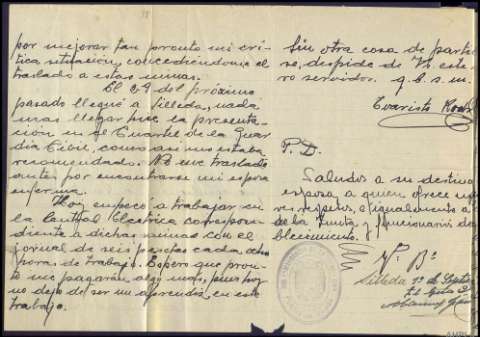 por mejorar tan pronto mi cri-
tica situación, concediendome el
traslado a estas minas.
El 29 del próximo
pasado llegué a Silleda, nada
mas llegar hice la presenta-
ción en el Cuartel de la Guar
dia Cibil, como asi me estaba
recomendado. No me traslado
antes por encontrarse mi esposa
enferma.
Hoy empecé a trabajar en
la Central Electrica correspon-
diente a dichas minas con el
jornal de seis pesetas cada ocho
horas de trabajo. Espero que pron-
to me pagarán algo mas, pues hoy
no dejo de ser un aprendiz en este
trabajo.
Sin otra cosa de parti
se despide de V. este
ro servidor. q.b.s.m.
Evaristo
P.D.
Saludos a su
esposa a quien ofrece
respetos, e igualmente a
de la Junta y funcionarios de
blecimiento.
Vº Bº
Silleda 1º de Septe